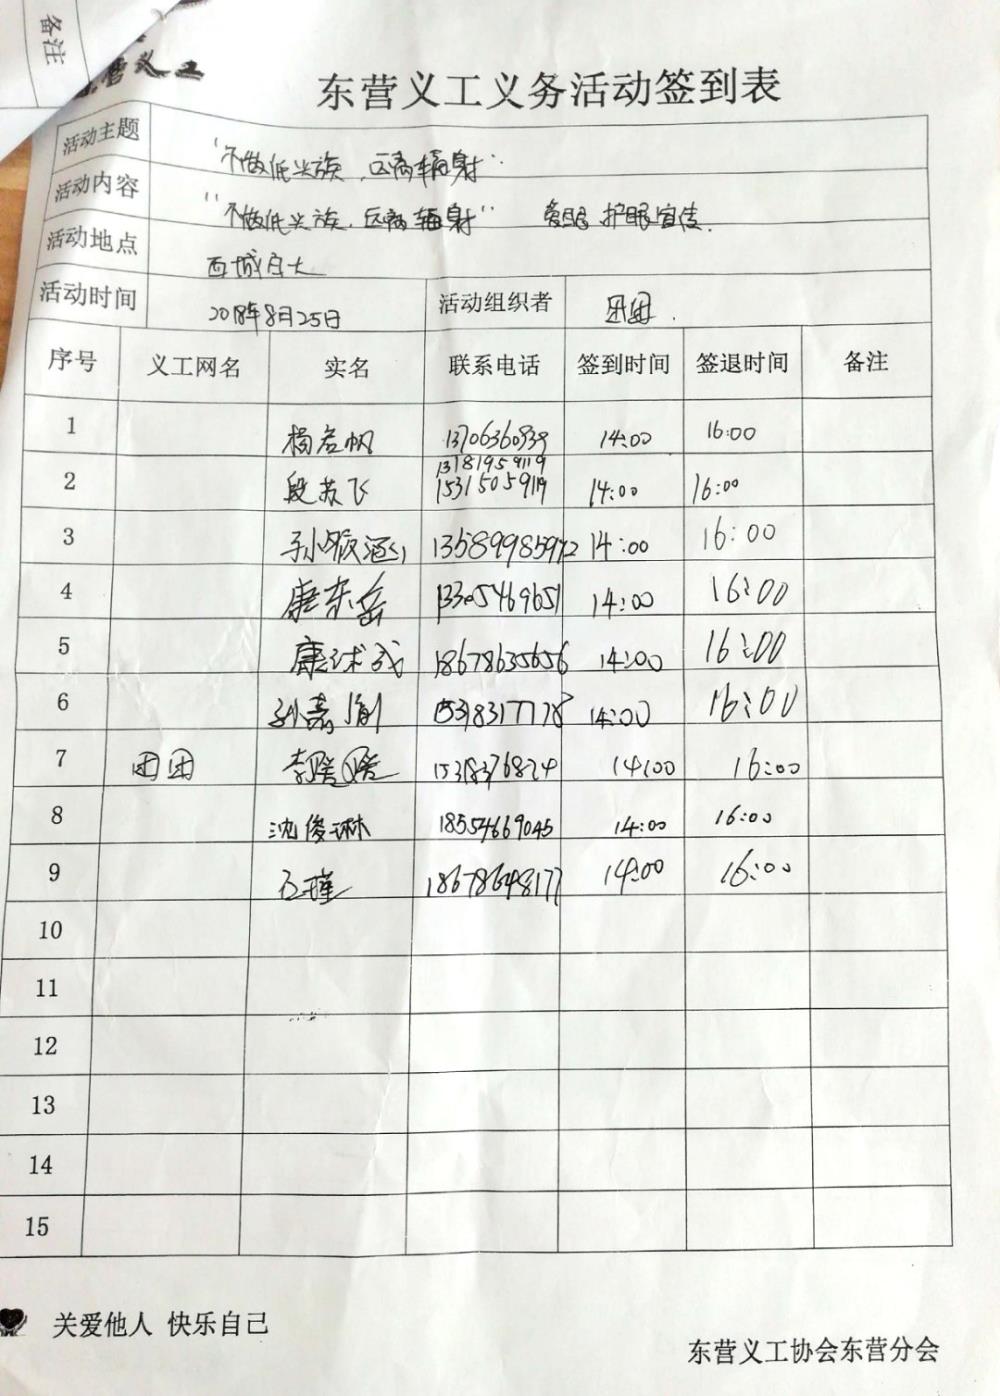 备注
营义工
东营义工义务活动签到表
活动主题 "不做低头族,远离辐射"
活动内容 "不做低头族,远离辐射" 爱眼 护眼宣传.
活动地点 西城
活动时间 2018年8月25日 活动组织者
序号 义工网名 实名 联系电话 签到时间 签退时间 备注
1 杨君帆 13706360939 14:00 16:00
13181959119
2 段苏飞 15315059119 14:00 16:00
3 13589985972 14:00 16:00
4 康东岳 13305469651 14:00 16:00
5 康球成 18678635656 14:00 16:00
6 孙嘉 15318317178 14:00 16:00
7 团团 15318376824 14:00 16:00
8 沈俊琳 18554669045 14:00 16:00
9 石瑾 18678648177 14:00 16:00
10
11
12
13
14
15
关爱他人 快乐自己
东营义工协会东营分会